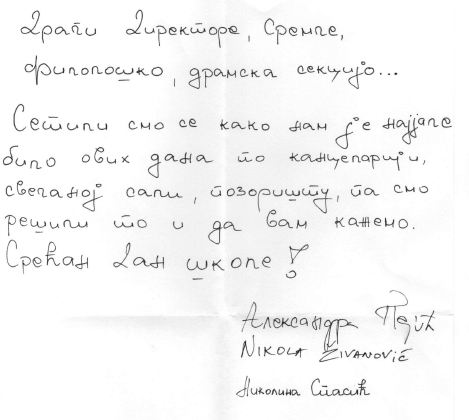 Драги Директоре, Сремче,
филолошко, драмска секцијо...
Сетили смо се како нам је најлепше
било ових дана по канцеларији,
свечаној сали, позоришту, па смо
решили то и да вам кажемо.
Срећан Дан школе!
Александра Пејић
NIKOLA ŽIVANOVIĆ
Николина Спасић